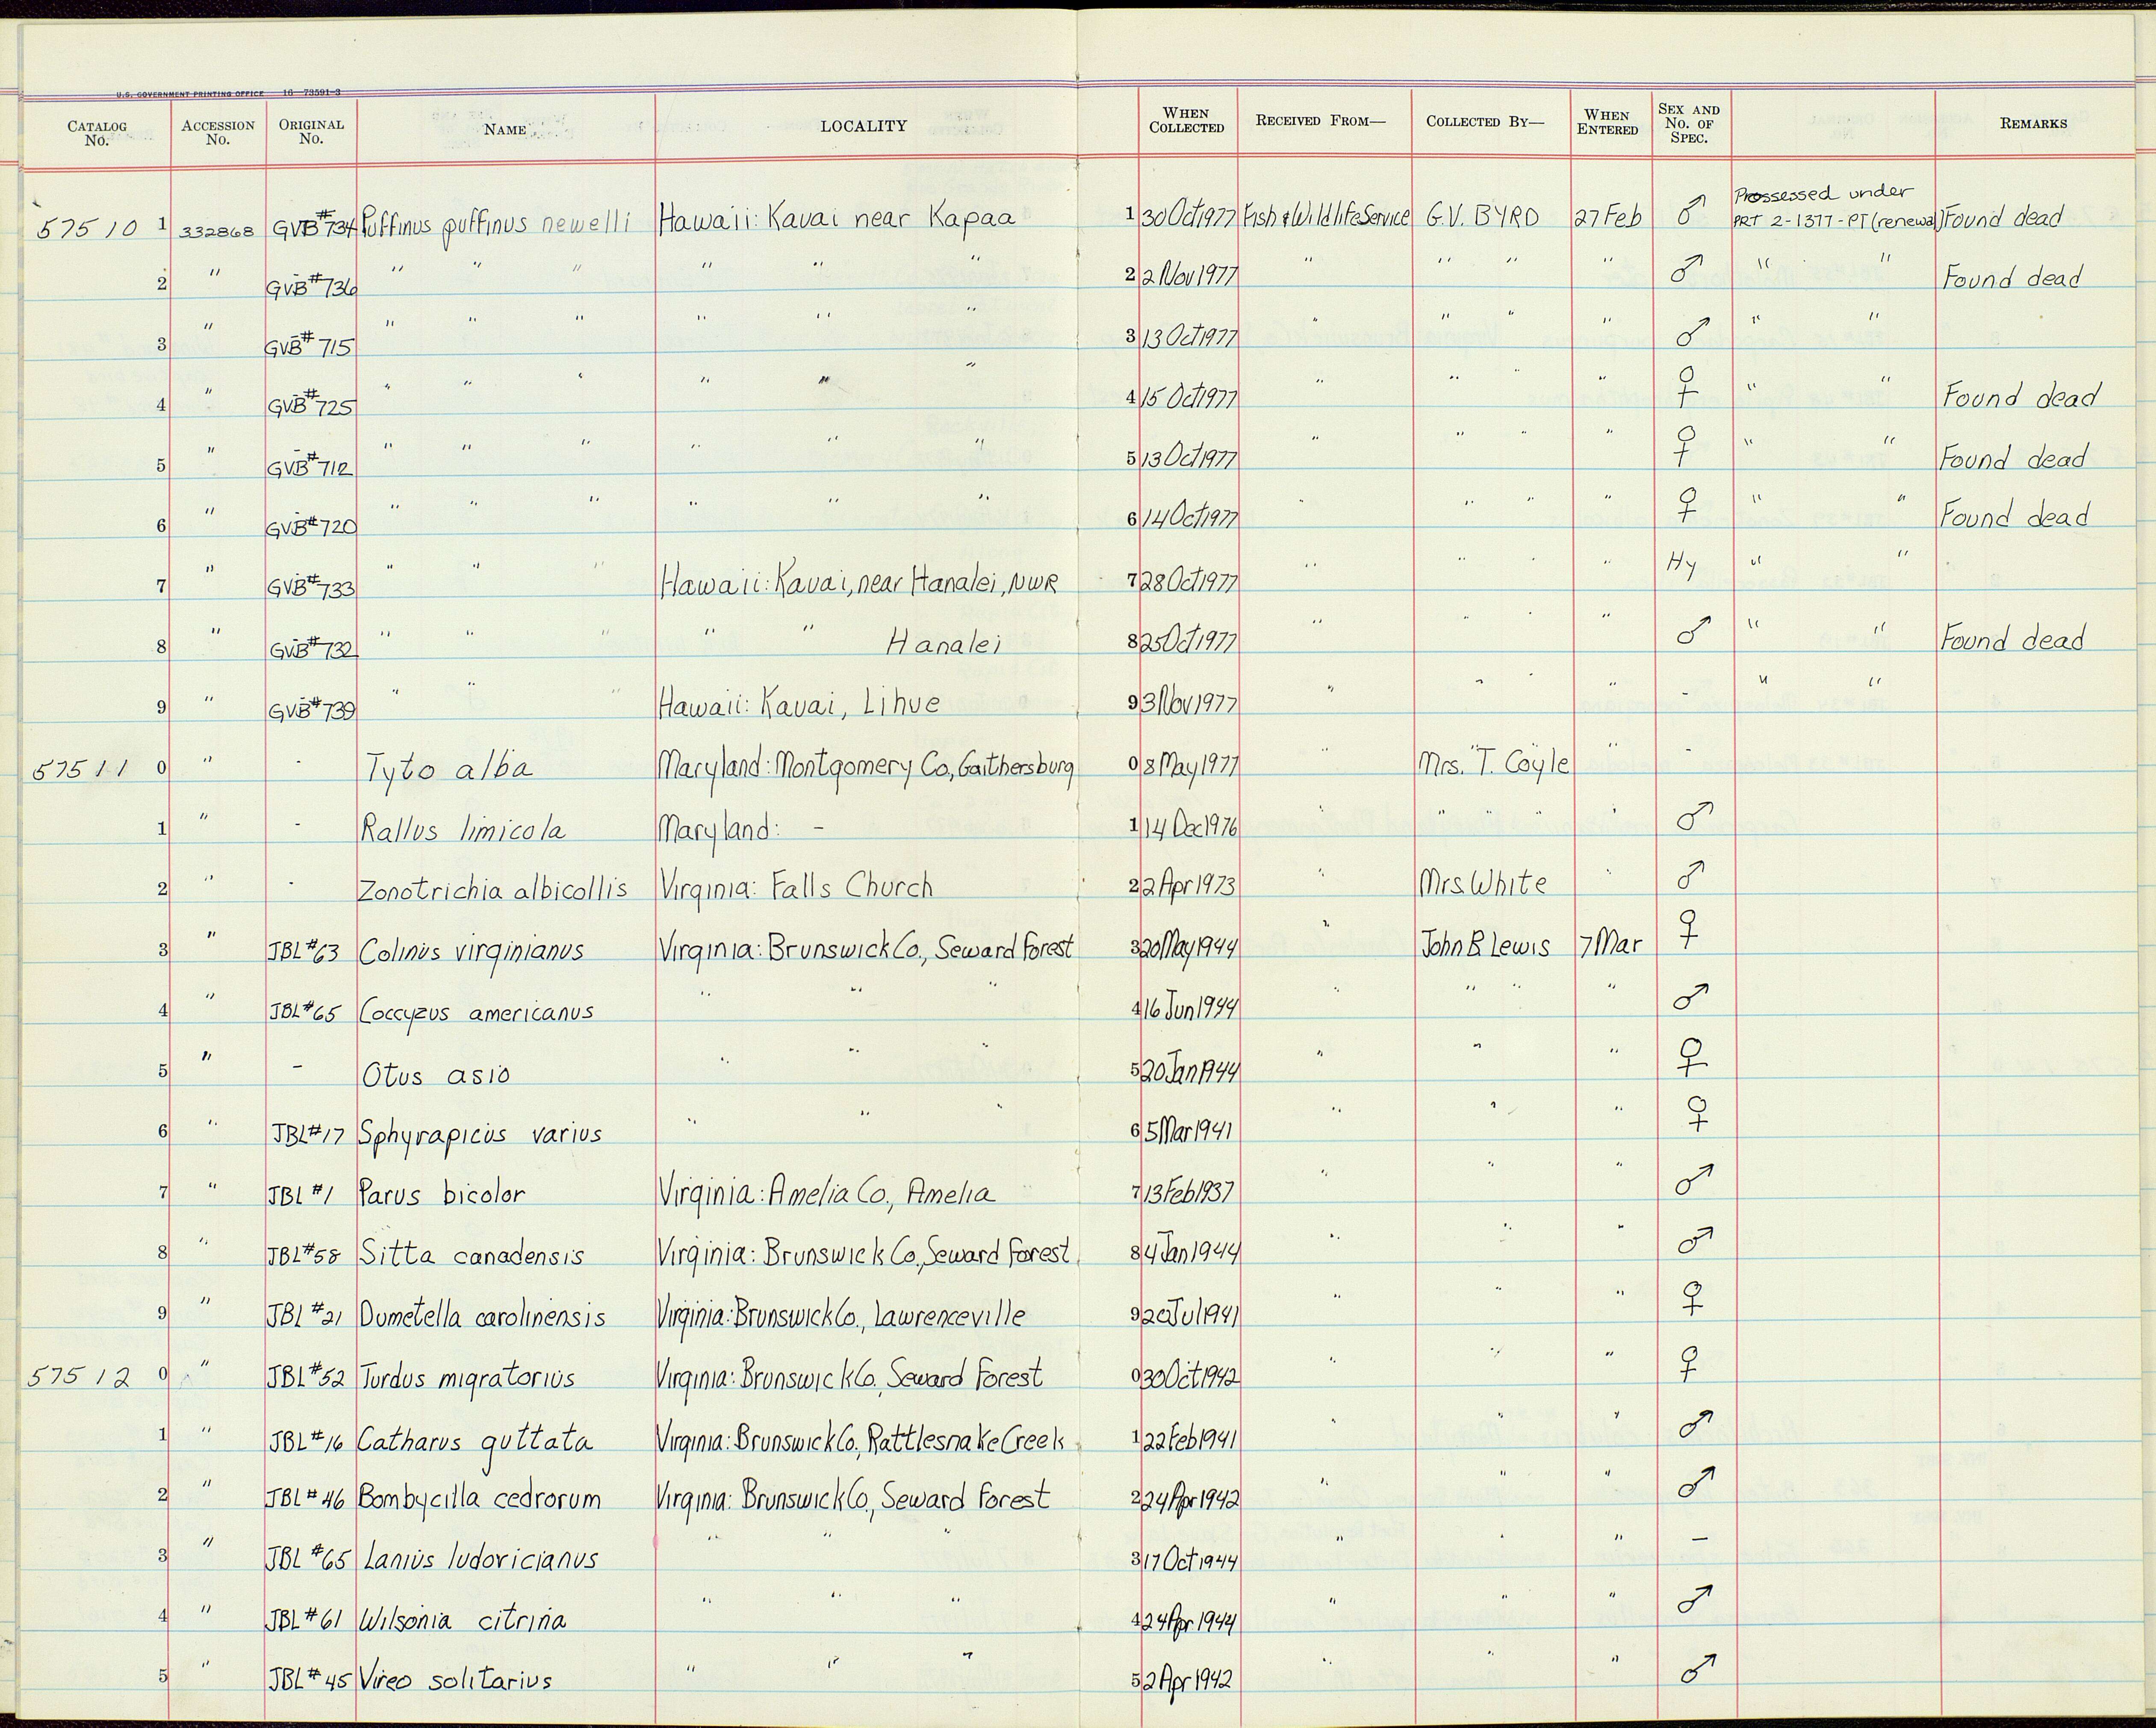 U.S. GOVERNMENT PRINTING OFFICE 16—73591-3
CATALOG No. ACCESSION No. ORIGINAL No. NAME LOCALITY WHEN COLLECTED RECEIVED FROM— COLLECTED BY— WHEN ENTERED SEX AND No. OF SPEC. REMARKS
57510 1 332868 GVB#734 Puffinus puffinus newelli Hawaii: Kauai near Kapaa 1 30 Oct 1977 Fish & Wildlife Service G.V. BYRD 27 Feb ♂ Prossessed under PRT 2-1377-PT (renewal) Found dead
2 " GVB#736 " " " " " " 2 2 Nov 1977 " " " " ♂ " " Found dead
3 " GVB#715 " " " " " " 3 13 Oct 1977 " " " " ♂ " "
4 " GVB#725 " " " " " " 4 15 Oct 1977 " " " " ♀ " " Found dead
5 " GVB#712 " " " " " " 5 13 Oct 1977 " " " " ♀ " " Found dead
6 " GVB#720 " " " " " " 6 14 Oct 1977 " " " " ♀ " " Found dead
7 " GVB#733 " " " Hawaii: Kauai, near Hanalei, NWR 7 28 Oct 1977 " " " " Hy " "
8 " GVB#732 " " " " " Hanalei 8 25 Oct 1977 " " " " ♂ " " Found dead
9 " GVB#739 " " " Hawaii: Kauai, Lihue 9 3 Nov 1977 " " " " - " "
57511 0 " - Tyto alba Maryland: Montgomery Co, Gaithersburg 0 8 May 1977 " Mrs. T. Coyle " -
1 " - Rallus limicola Maryland: - 1 14 Dec 1976 " " " " " ♂
2 " - Zonotrichia albicollis Virginia: Falls Church 2 2 Apr 1973 " Mrs White " ♂
3 " JBL#63 Colinus virginianus Virginia: Brunswick Co., Seward Forest 3 20 May 1944 " John B Lewis 7 Mar ♀
4 " JBL#65 Coccyzus americanus " " " 4 16 Jun 1944 " " " " ♂
5 " - Otus asio " " " 5 20 Jan 1944 " " " ♀
6 " JBL#17 Sphyrapicus varius " " " 6 5 Mar 1941 " " " ♀
7 " JBL #1 Parus bicolor Virginia: Amelia Co., Amelia 7 13 Feb 1937 " " " ♂
8 " JBL#58 Sitta canadensis Virginia: Brunswick Co, Seward Forest 8 4 Jan 1944 " " " ♂
9 " JBL #21 Dumetella carolinensis Virginia: Brunswick Co., Lawrenceville 9 20 Jul 1941 " " " ♀
57512 0 " JBL#52 Turdus migratorius Virginia: Brunswick Co. Seward Forest 0 30 Oct 1942 " " " ♀
1 " JBL#16 Catharus guttata Virginia: Brunswick Co, Rattlesnake Creek 1 22 Feb 1941 " " " ♂
2 " JBL #46 Bombycilla cedrorum Virginia: Brunswick Co., Seward Forest 2 24 Apr 1942 " " " ♂
3 " JBL #65 Lanius ludoricianus " " " 3 17 Oct 1944 " " " -
4 " JBL #61 Wilsonia citrina " " " 4 24 Apr 1944 " " " ♂
5 " JBL #45 Vireo solitarius " " " 5 2 Apr 1942 " " " ♂